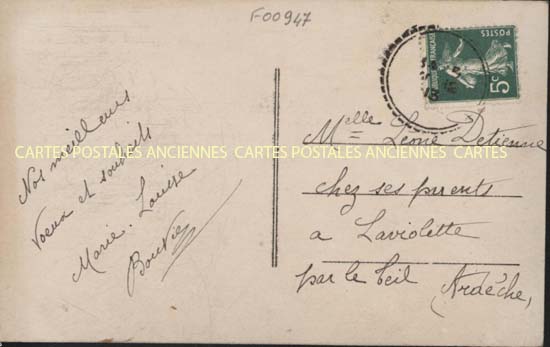 F00947
Nos meilleurs
Voeux et souhaits
Marie-Louise
Bouvier
POSTES
RÉPUBLIQUE FRANÇAISE
5c
Melle Léonie Detienne
CARTES POSTALES ANCIENNES CARTES POSTALES ANCIENNES CARTES
chez ses parents
a Laviolette
par le Teil (Ardèche)